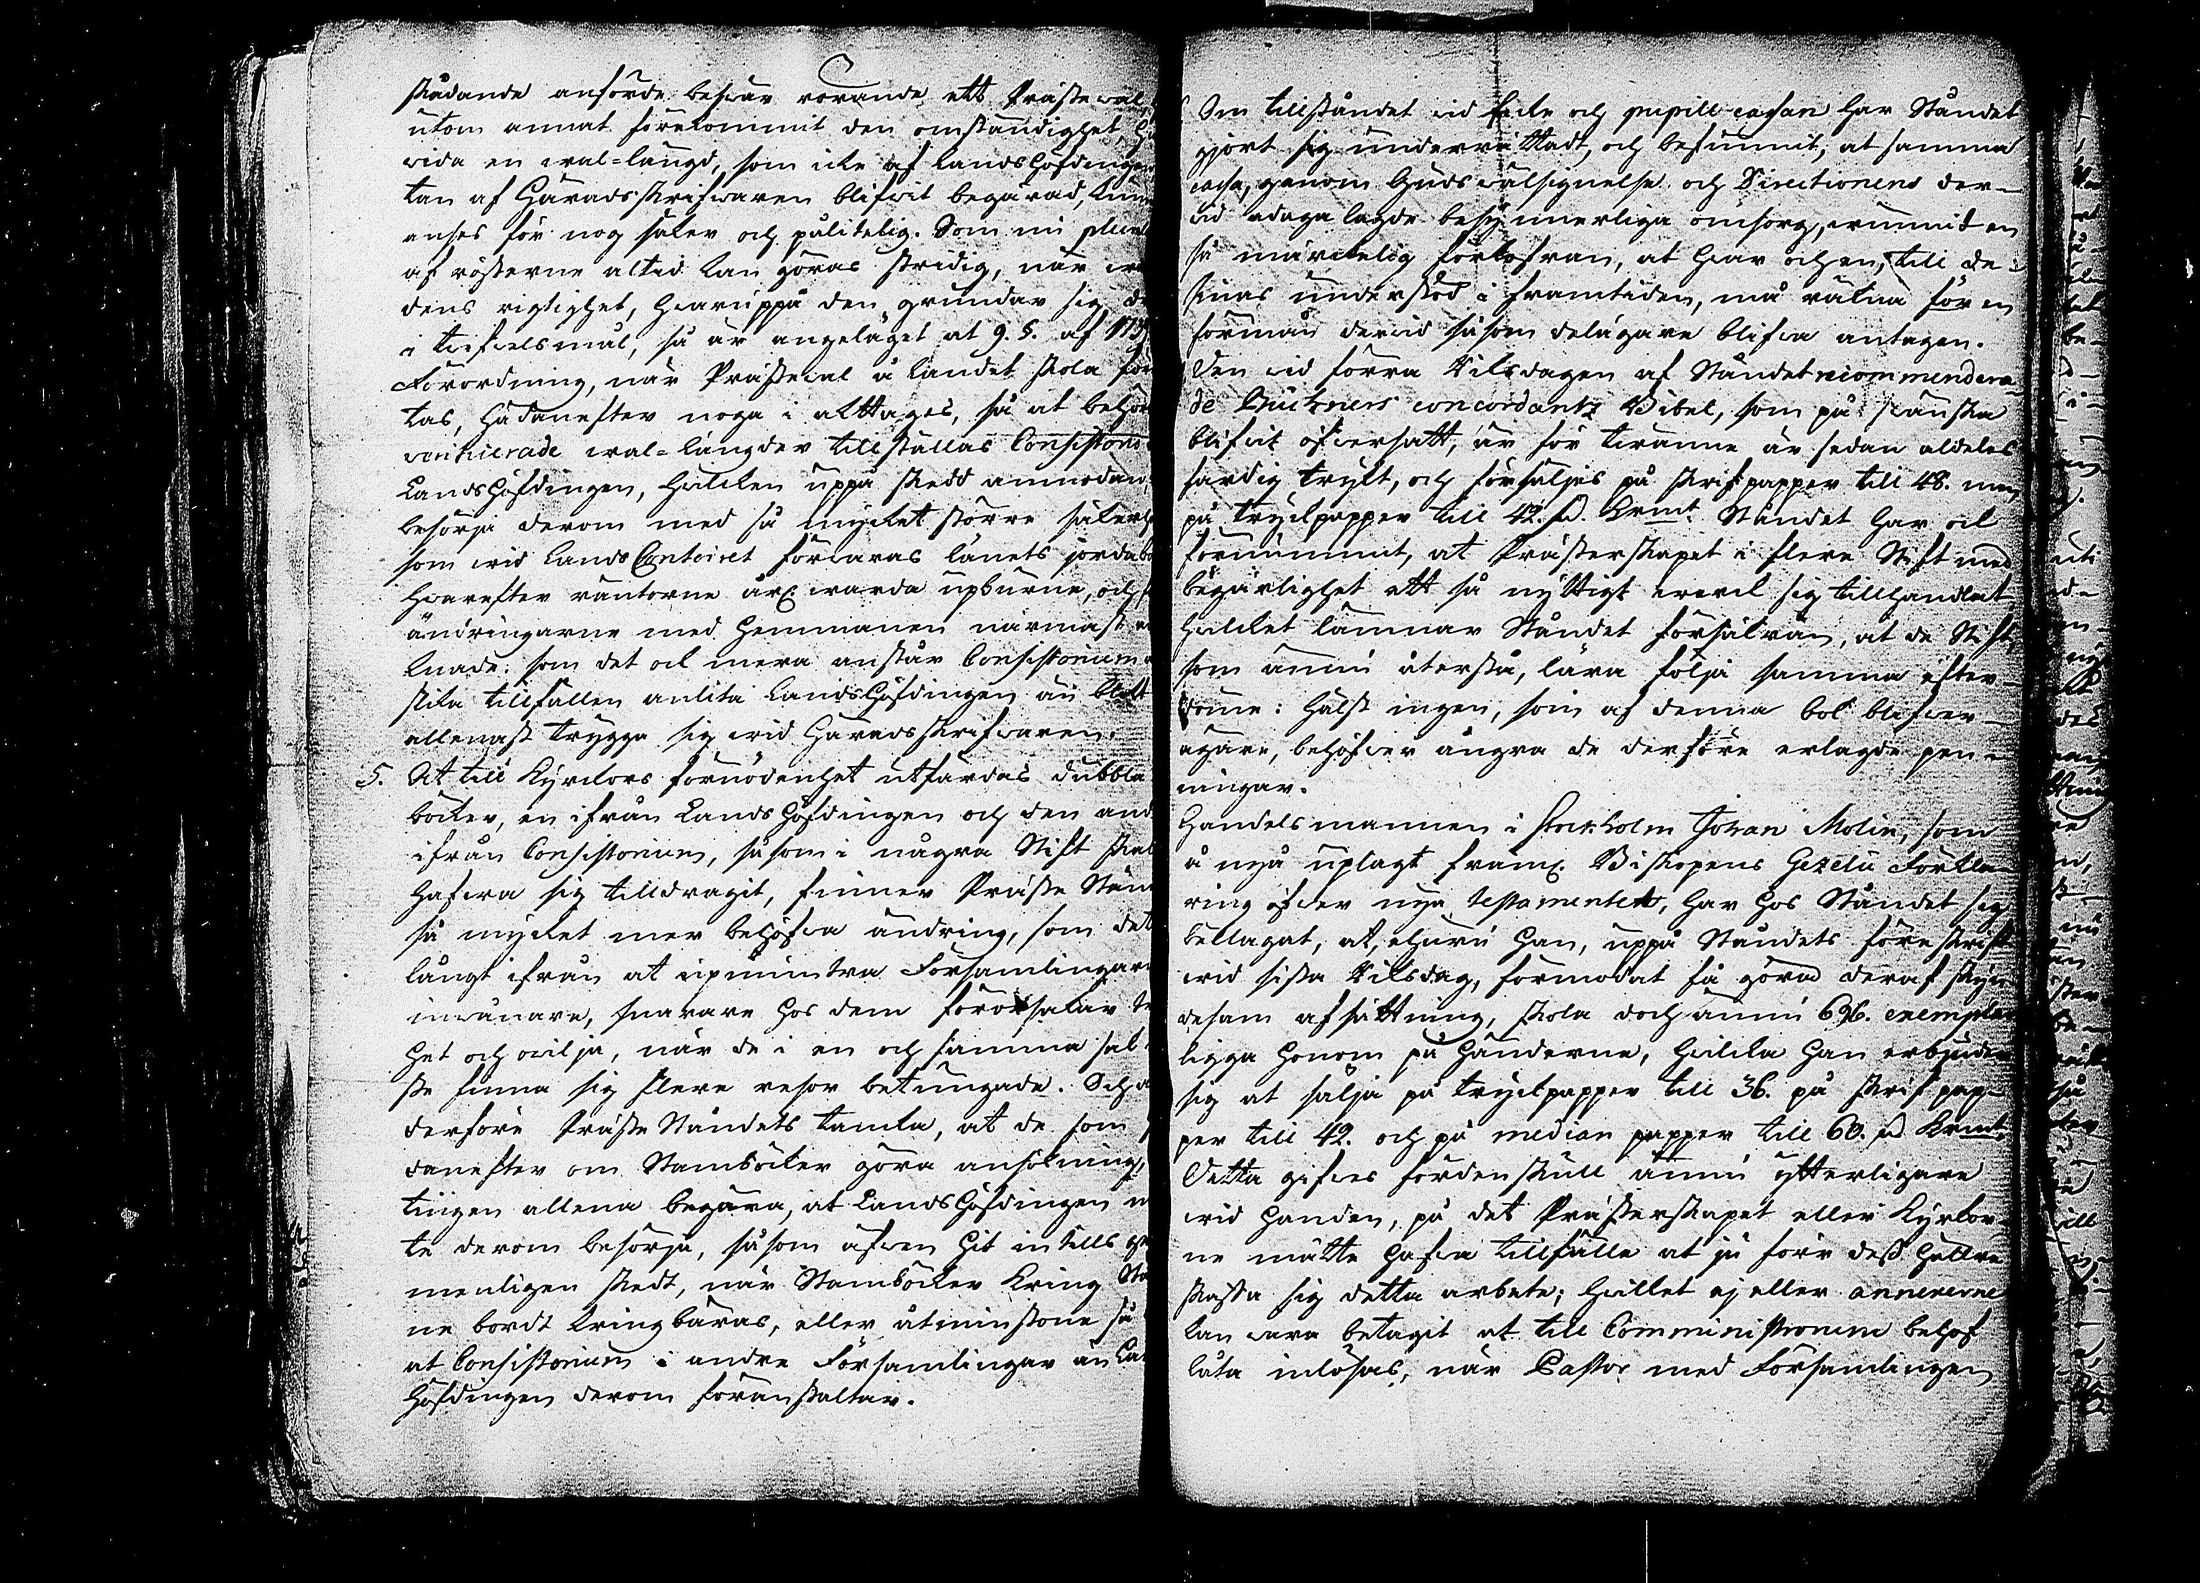 skådande anförde beswär rörande ett Prästewal,
utom annat förekommit den omständighet, hu
wida en wal=längd, som icke af Landshöfdingen
tan af Häradsskrifwaren blifwit begärad, kun
anses för nog säker och pålitelig. Som nu plural
af rösterne altid kan göras stridig, när
dens rigtighet, hwaruppå den grundar sig,
i twifwelsmål, så är angeläget at 9. §. af 173
Förordning, när Prästewal å landet skola för
tas, hädanefter noga i akttages, så at behör
verificerade wal=längder tillställas Consistori
Landshöfdingen, hwilken uppå skedd anmodan,
besörja derom med så mycket större säkerh
som wid LandsContoiret förwaras länets jordab
hwarefter räntorne årl. warda upburne, och
ändringarne med Hemmanen närmast
knade: som det ock mera anstår Consistorium
slika tillfällen anlita Landshöfdingen än blott
allenast trygga sig wid Häradsskrifwaren.
5. At till Kyrckors förnödenhet utfärdas dubbla
böcker, en ifrån Landshöfdingen och den and
ifrån Consistorium, såsom i några Stift skal
hafwa sig tilldragit, finner Präste Stån
så mycket mer behöfwa ändring, som det
långt ifrån at upmuntra Församlingar
inwånare, snarare hos dem förorsakar
het och owilja, när de i en och samma sak
ste finna sig flere resor betungade. Och
derföre Präste Ståndets tanka, at de som
danefter om Stamböcker göra ansökning,
tingen allena begära, at Landshöfdingen
te derom besörja, såsom äfwen hit intills
menligen skedt, när Stamböcker kring
ne bordt kringbäras, eller åtminstone så
at Consistorium i andre Församlingar än La
höfdingen derom föranstaltar.
Om tillståndet wid Encke och pupill-cassan har Ståndet
gjort sig underrättadt, och befunnit, at samma
cassa, genom Guds wälsignelse och Directionens der-
wid ådagalagde bekymmerliga omsorg, wunnit en
så märckelig förkofran, at hwar och en, till de
sinas understöd i framtiden, må räkna för en
förmån derwid såsom delägare blifwa antagen.
Den wid förra Riksdagen af Ståndet recommendera-
de Büchners concordantz Bibel, som på swenska
blifwit öfwersatt, är för twänne år sedan aldeles
färdig tryckt, och försäljes på skrifpapper till 48. men
på tryckpapper till 42. d. Krmt. Ståndet har ock
förnummit, at Prästerskapet i flere Stift med
begärlighet ett så nyttigt werck sig tillhandlat
hwilcket lämnar Ståndet försäkran, at de Stift,
som ännu återstå, lära följa samma efter-
döme: hälst ingen, som af denna bok blifwer
ägare, behöfwer ångra de derföre erlagde pen-
ningar.
Handelsmannen i Stockholm Johan Molin, som
å nyo uplagt framl. Biskopens Gezelii Förkla-
ring öfwer nya testamentet, har hos Ståndet sig
beklagat, at, ehuru han, uppå Ståndets föreskrift
wid sista Riksdag, förmodat få göra deraf skyn-
desam afsättning, skola doch ännu 696. exemplar
ligga honom på händerne, hwilcka han erbjuder
sig at sälja på tryckpapper till 36. på skrifpap-
per till 42. och på median papper till 60. d. Krmt.
Detta gifwes fördenskull ännu ytterligare
wid handen, på det Prästerskapet eller Kyrkor-
ne måtte hafwa tillfälle at ju förr dess hellre
skaffa sig detta arbete; hwilket ej eller annexerne
kan wara betagit at till Comministrorum behof
låta inlösas, när Pastor med Församlingen